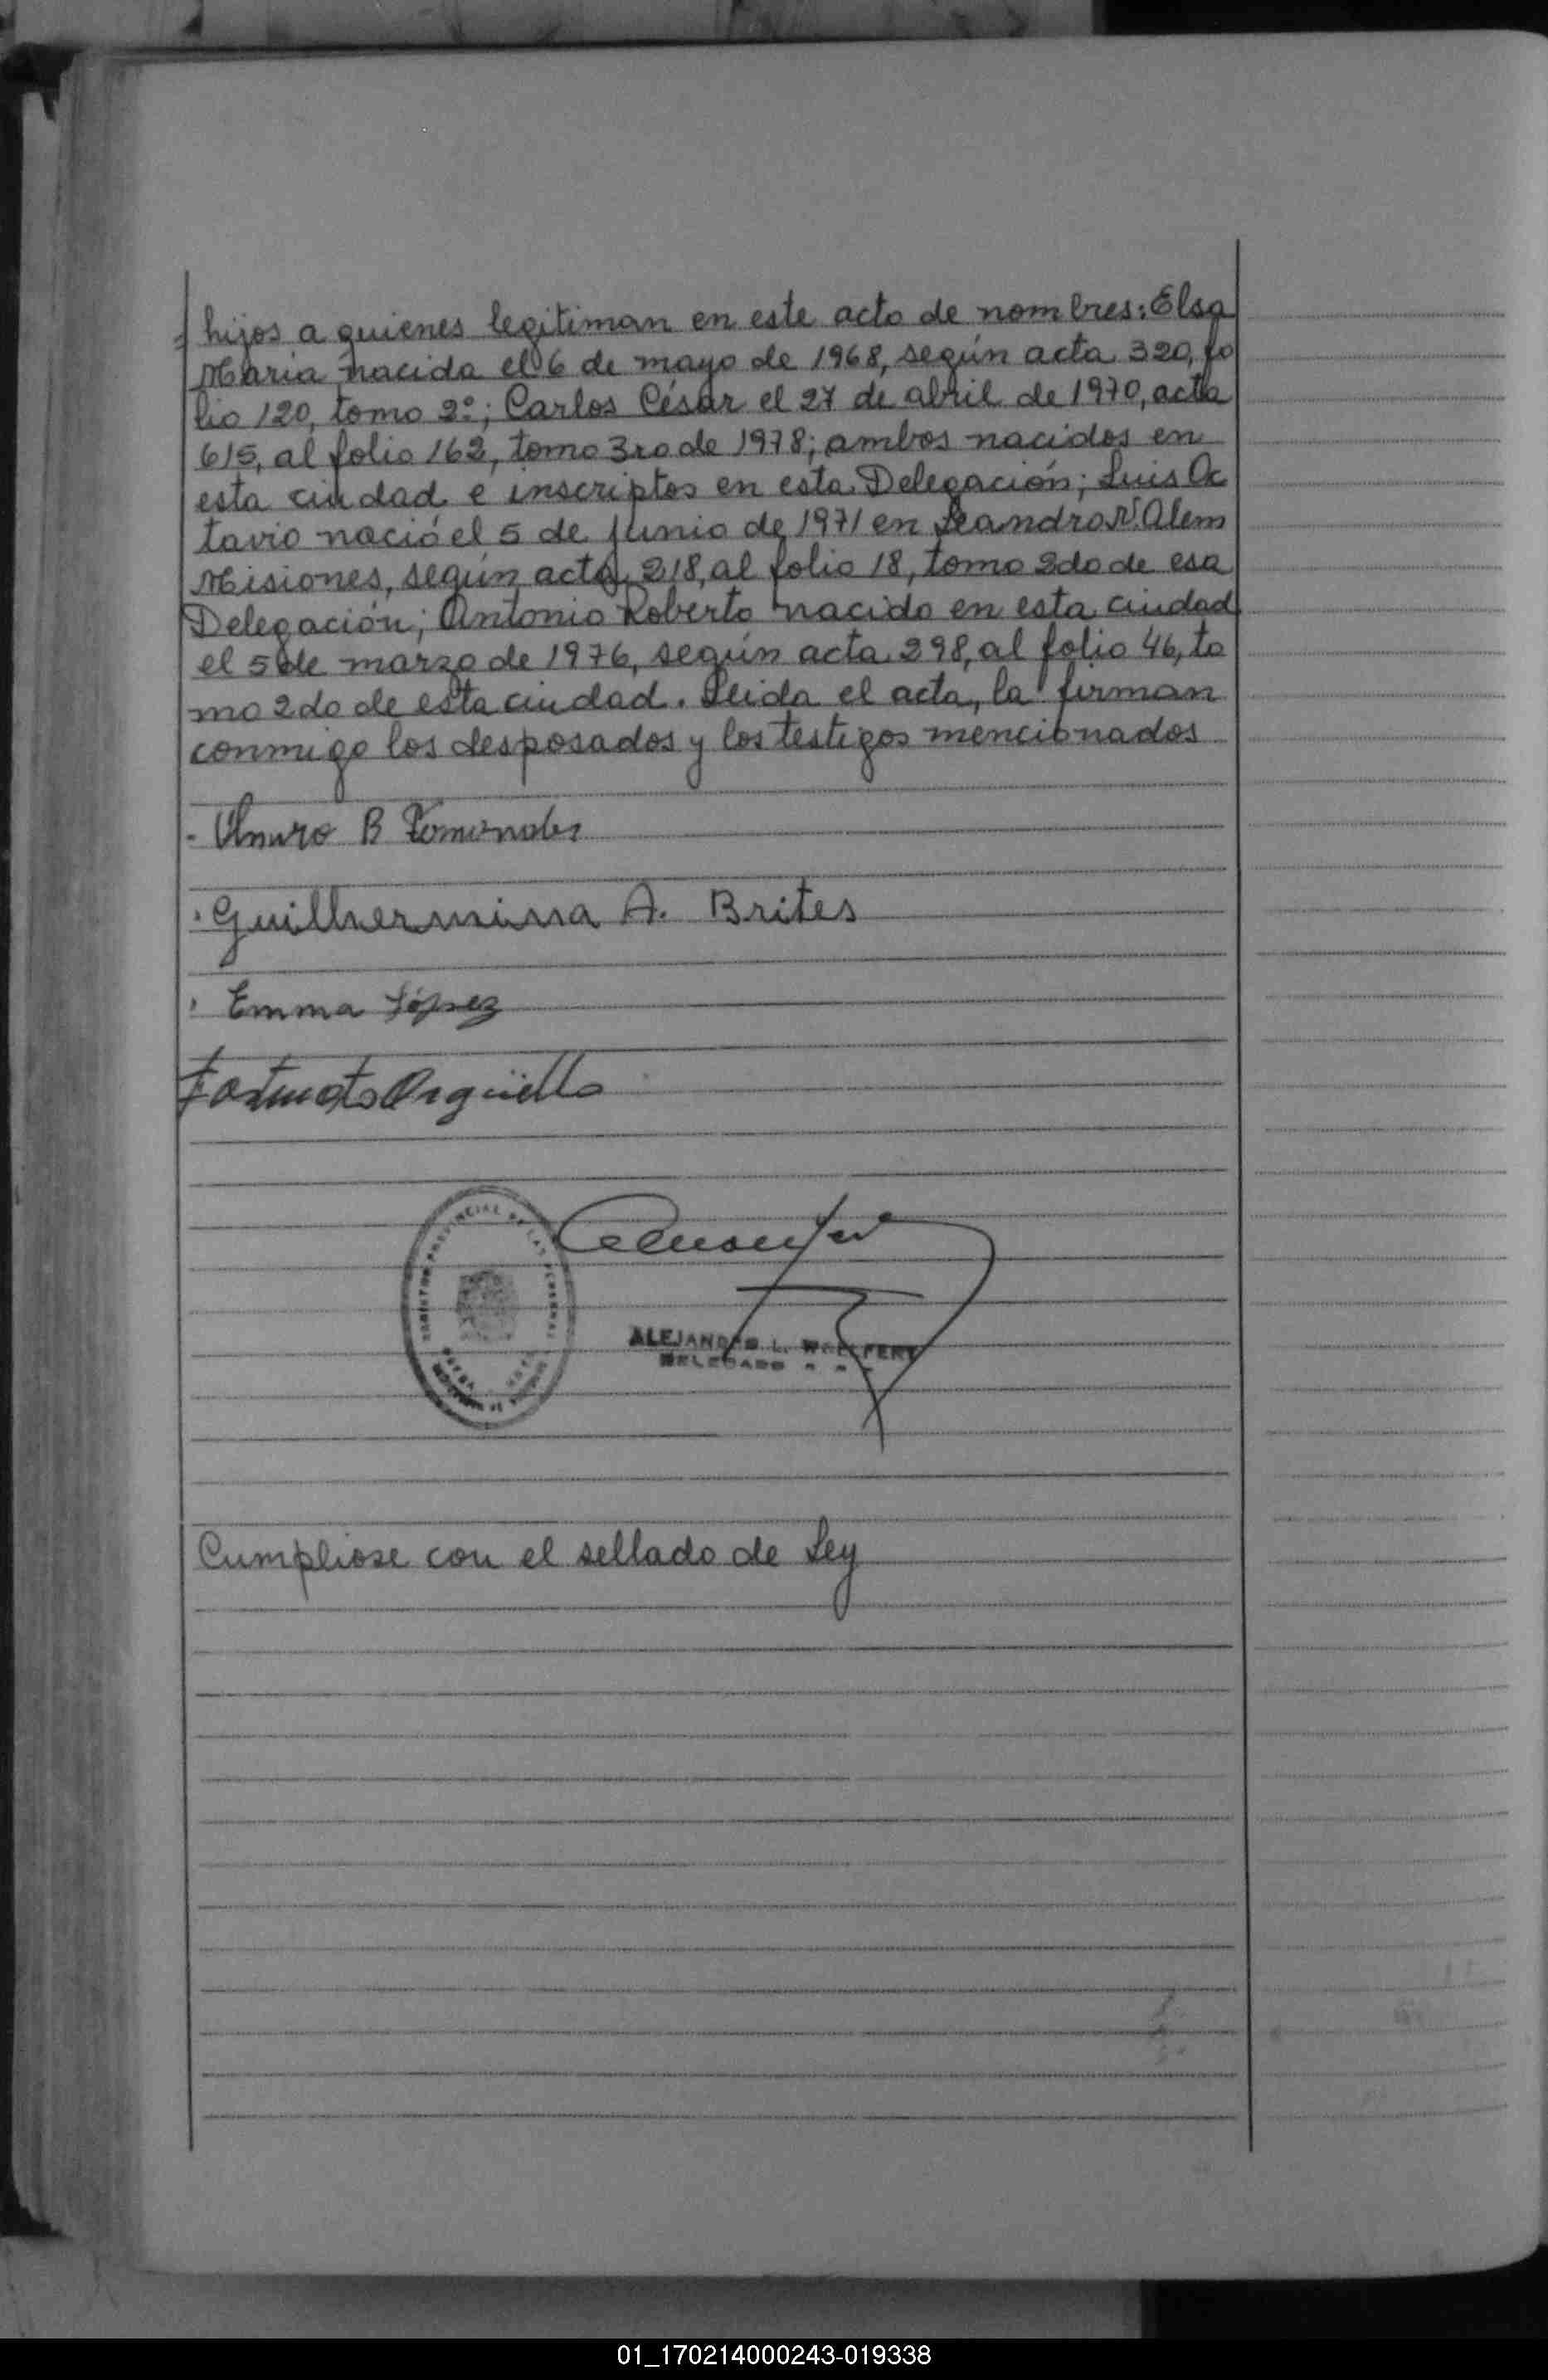 hijos a quienes legitiman en este acto de nombres: Elsa
Maria nacida el 6 de mayo de 1968, según acta 320, fo
lio 120, tomo 2º; Carlos César el 27 de abril de 1970, acta
615, al folio 162, tomo 3ro de 1978; ambos nacidos en
esta ciudad e inscriptos en esta Delegación; Luis Oc
tavio nació el 5 de junio de 1971 en Leandro N. Alem
Misiones, según acta 218, al folio 18, tomo 2do de esa
Delegación; Antonio Roberto nacido en esta ciudad
el 5 de marzo de 1976, según acta 298, al folio 46, to
mo 2do de esta ciudad. Leida el acta, la firman
conmigo los desposados y los testigos mencionados
B
Guilhermina A. Brites
Emma López
Fortunato Argüello
ALEJANDRO L.
DELEGADO
Cumpliose con el sellado de Ley
01_170214000243-019338